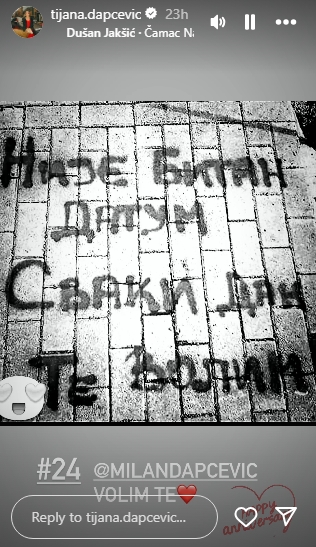 tijana.dapcevic 23h
Dušan Jakšić · Čamac Na
Није Битан
Датум
Сваки Дан
Те Волим
#24 @MILANDAPCEVIC
VOLIM TE❤️
happy
anniversary
Reply to tijana.dapcevic...